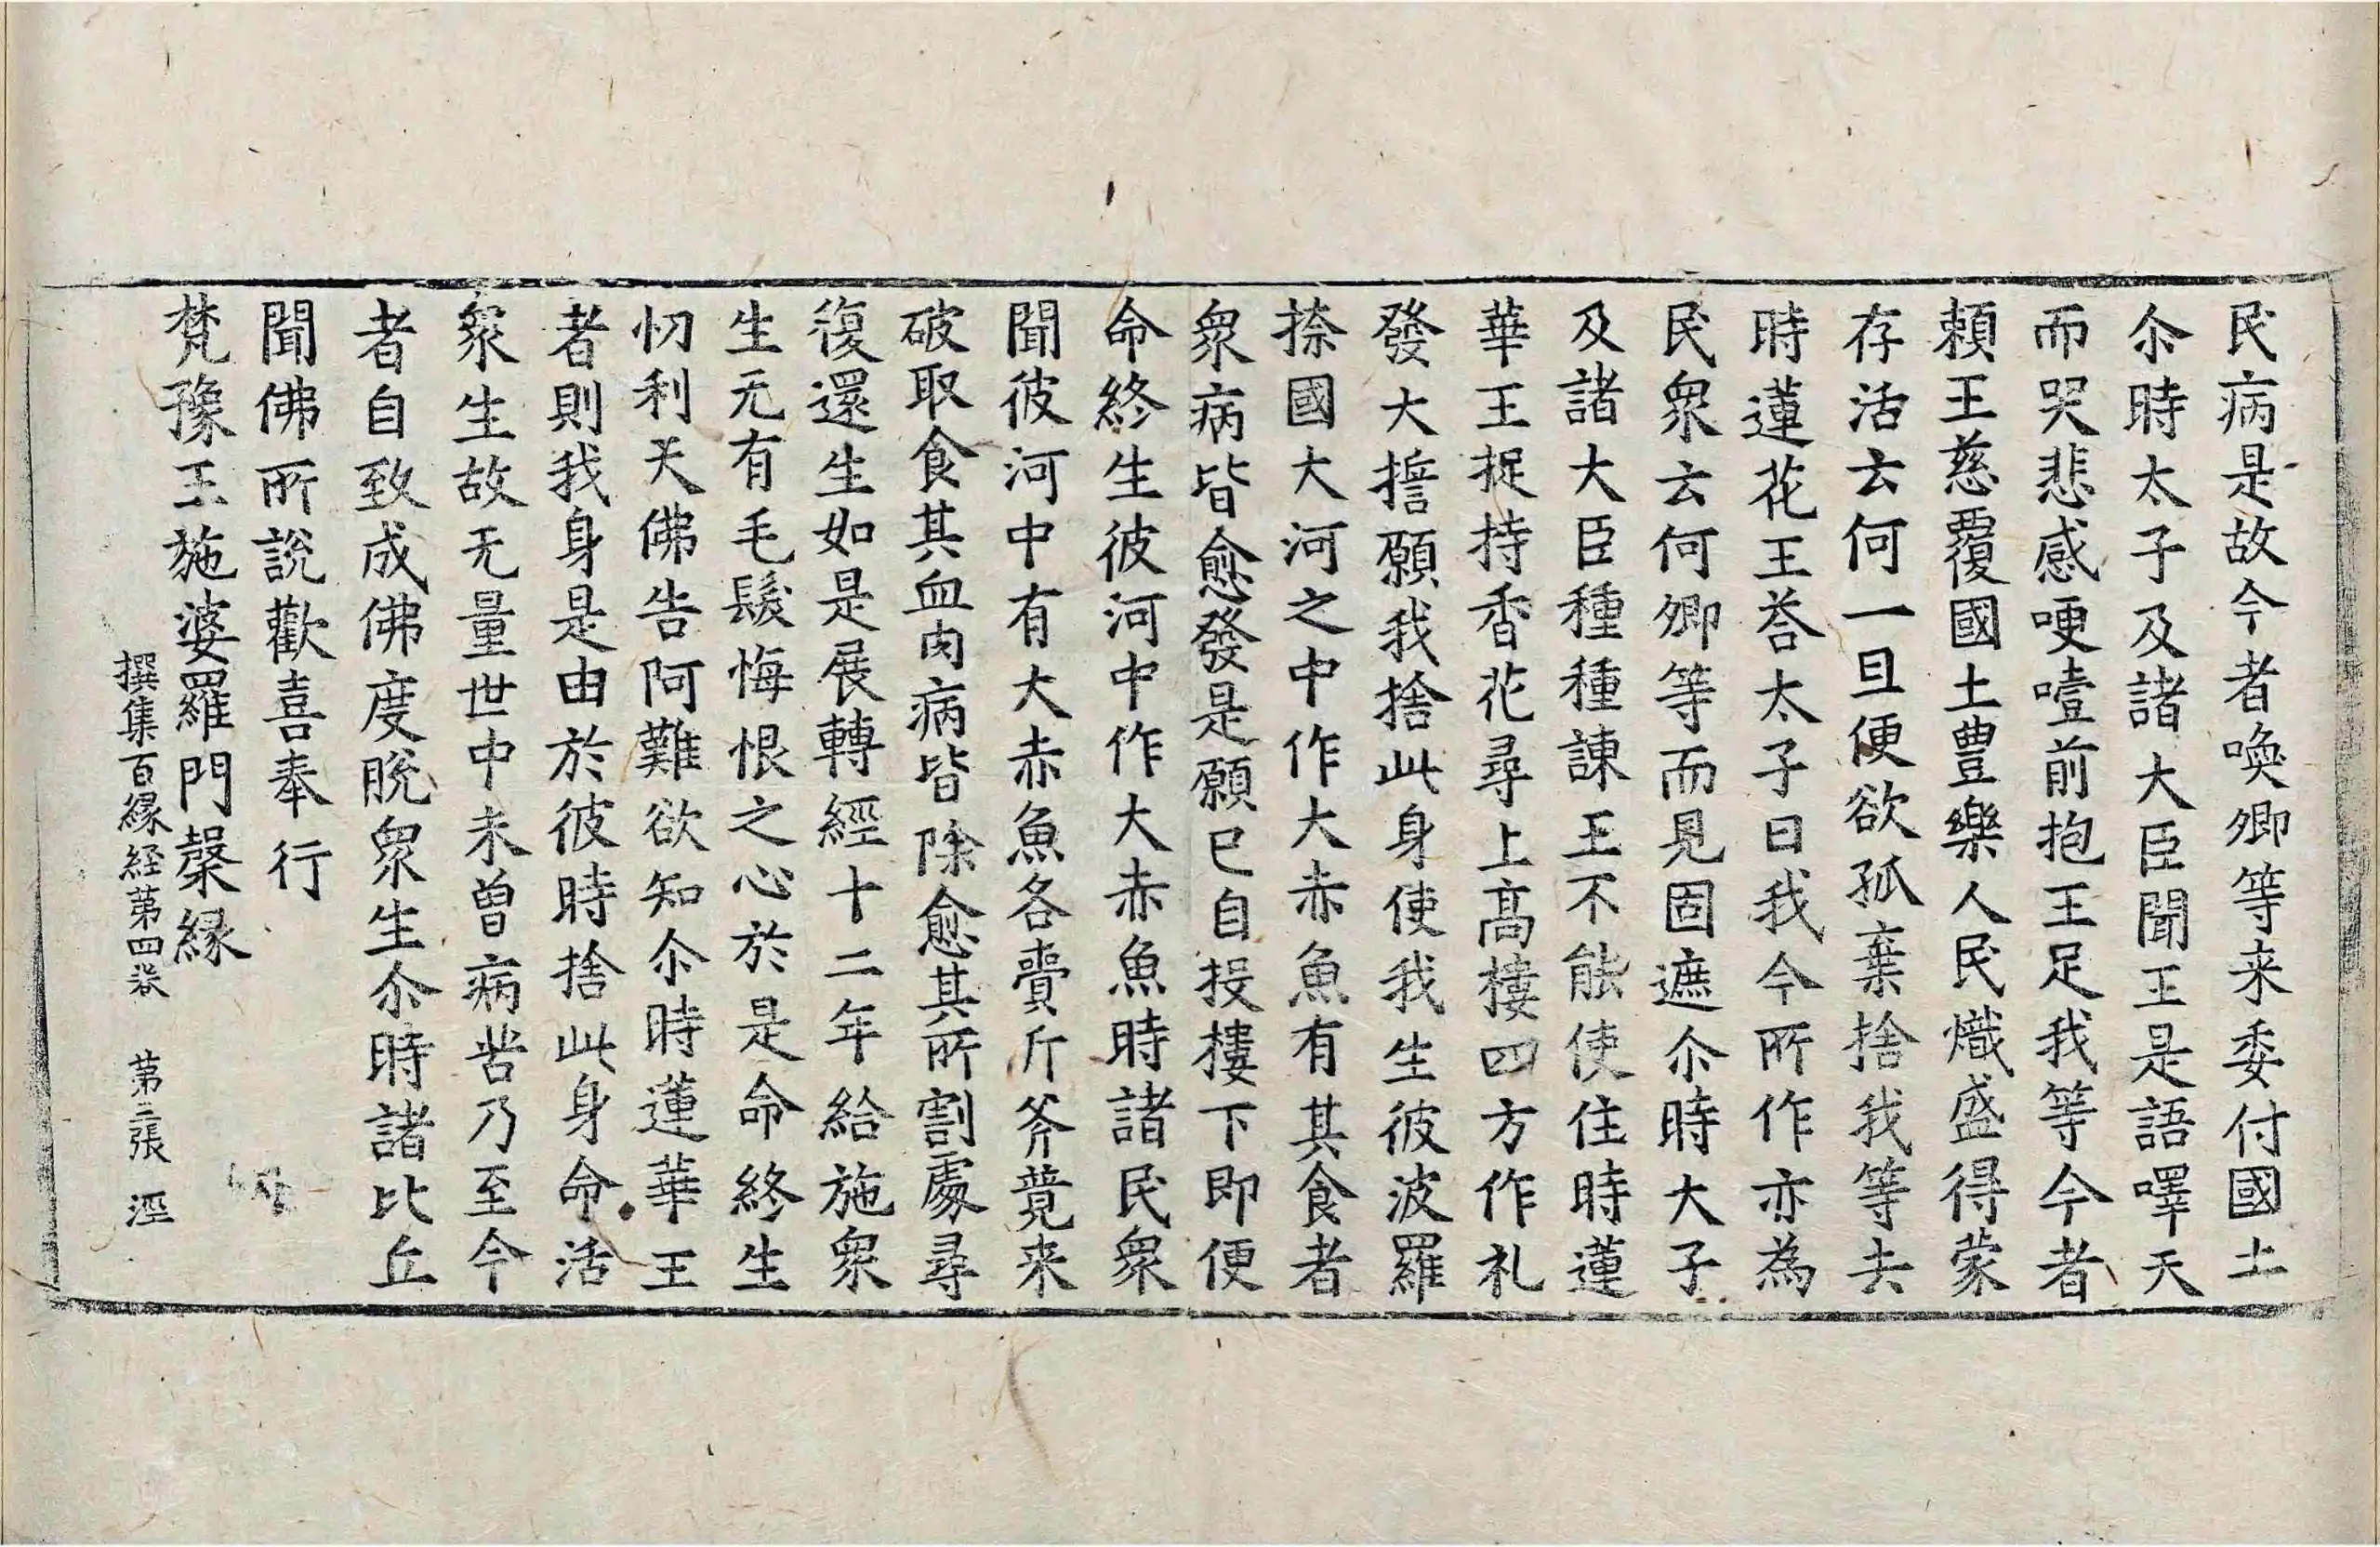 民病是故今者喚卿等来委付國土
尒時太子及諸大臣聞王是語嘷天
而哭悲感哽噎前抱王足我等今者
頼王慈覆國土豊樂人民熾盛得蒙
存活云何一旦便欲孤棄捨我等去
時蓮花王荅太子曰我今所作亦為
民衆云何卿等而見固遮尒時大子
及諸大臣種種諫王不能使住時蓮
華王捉持香花尋上髙樓四方作礼
發大擔願我捨此身使我生彼波羅
捺國大河之中作大赤魚有其食者
衆病皆愈發是願已自投樓下即便
命終生彼河中作大赤魚時諸民衆
聞彼河中有大赤魚各賷斤斧競来
破取食其血肉病皆除愈其所割處尋
復還生如是展轉經十二年給施衆
生无有毛髮悔恨之心於是命終生
忉利天佛告阿難欲知尒時蓮華王
者則我身是由於彼時捨此身命活
衆生故无量世中未曽病苦乃至今
者自致成佛度脱衆生尒時諸比丘
聞佛所説歡喜奉行
梵豫王施婆羅門縠縁
撰集百縁経苐四巻 苐二張 涇